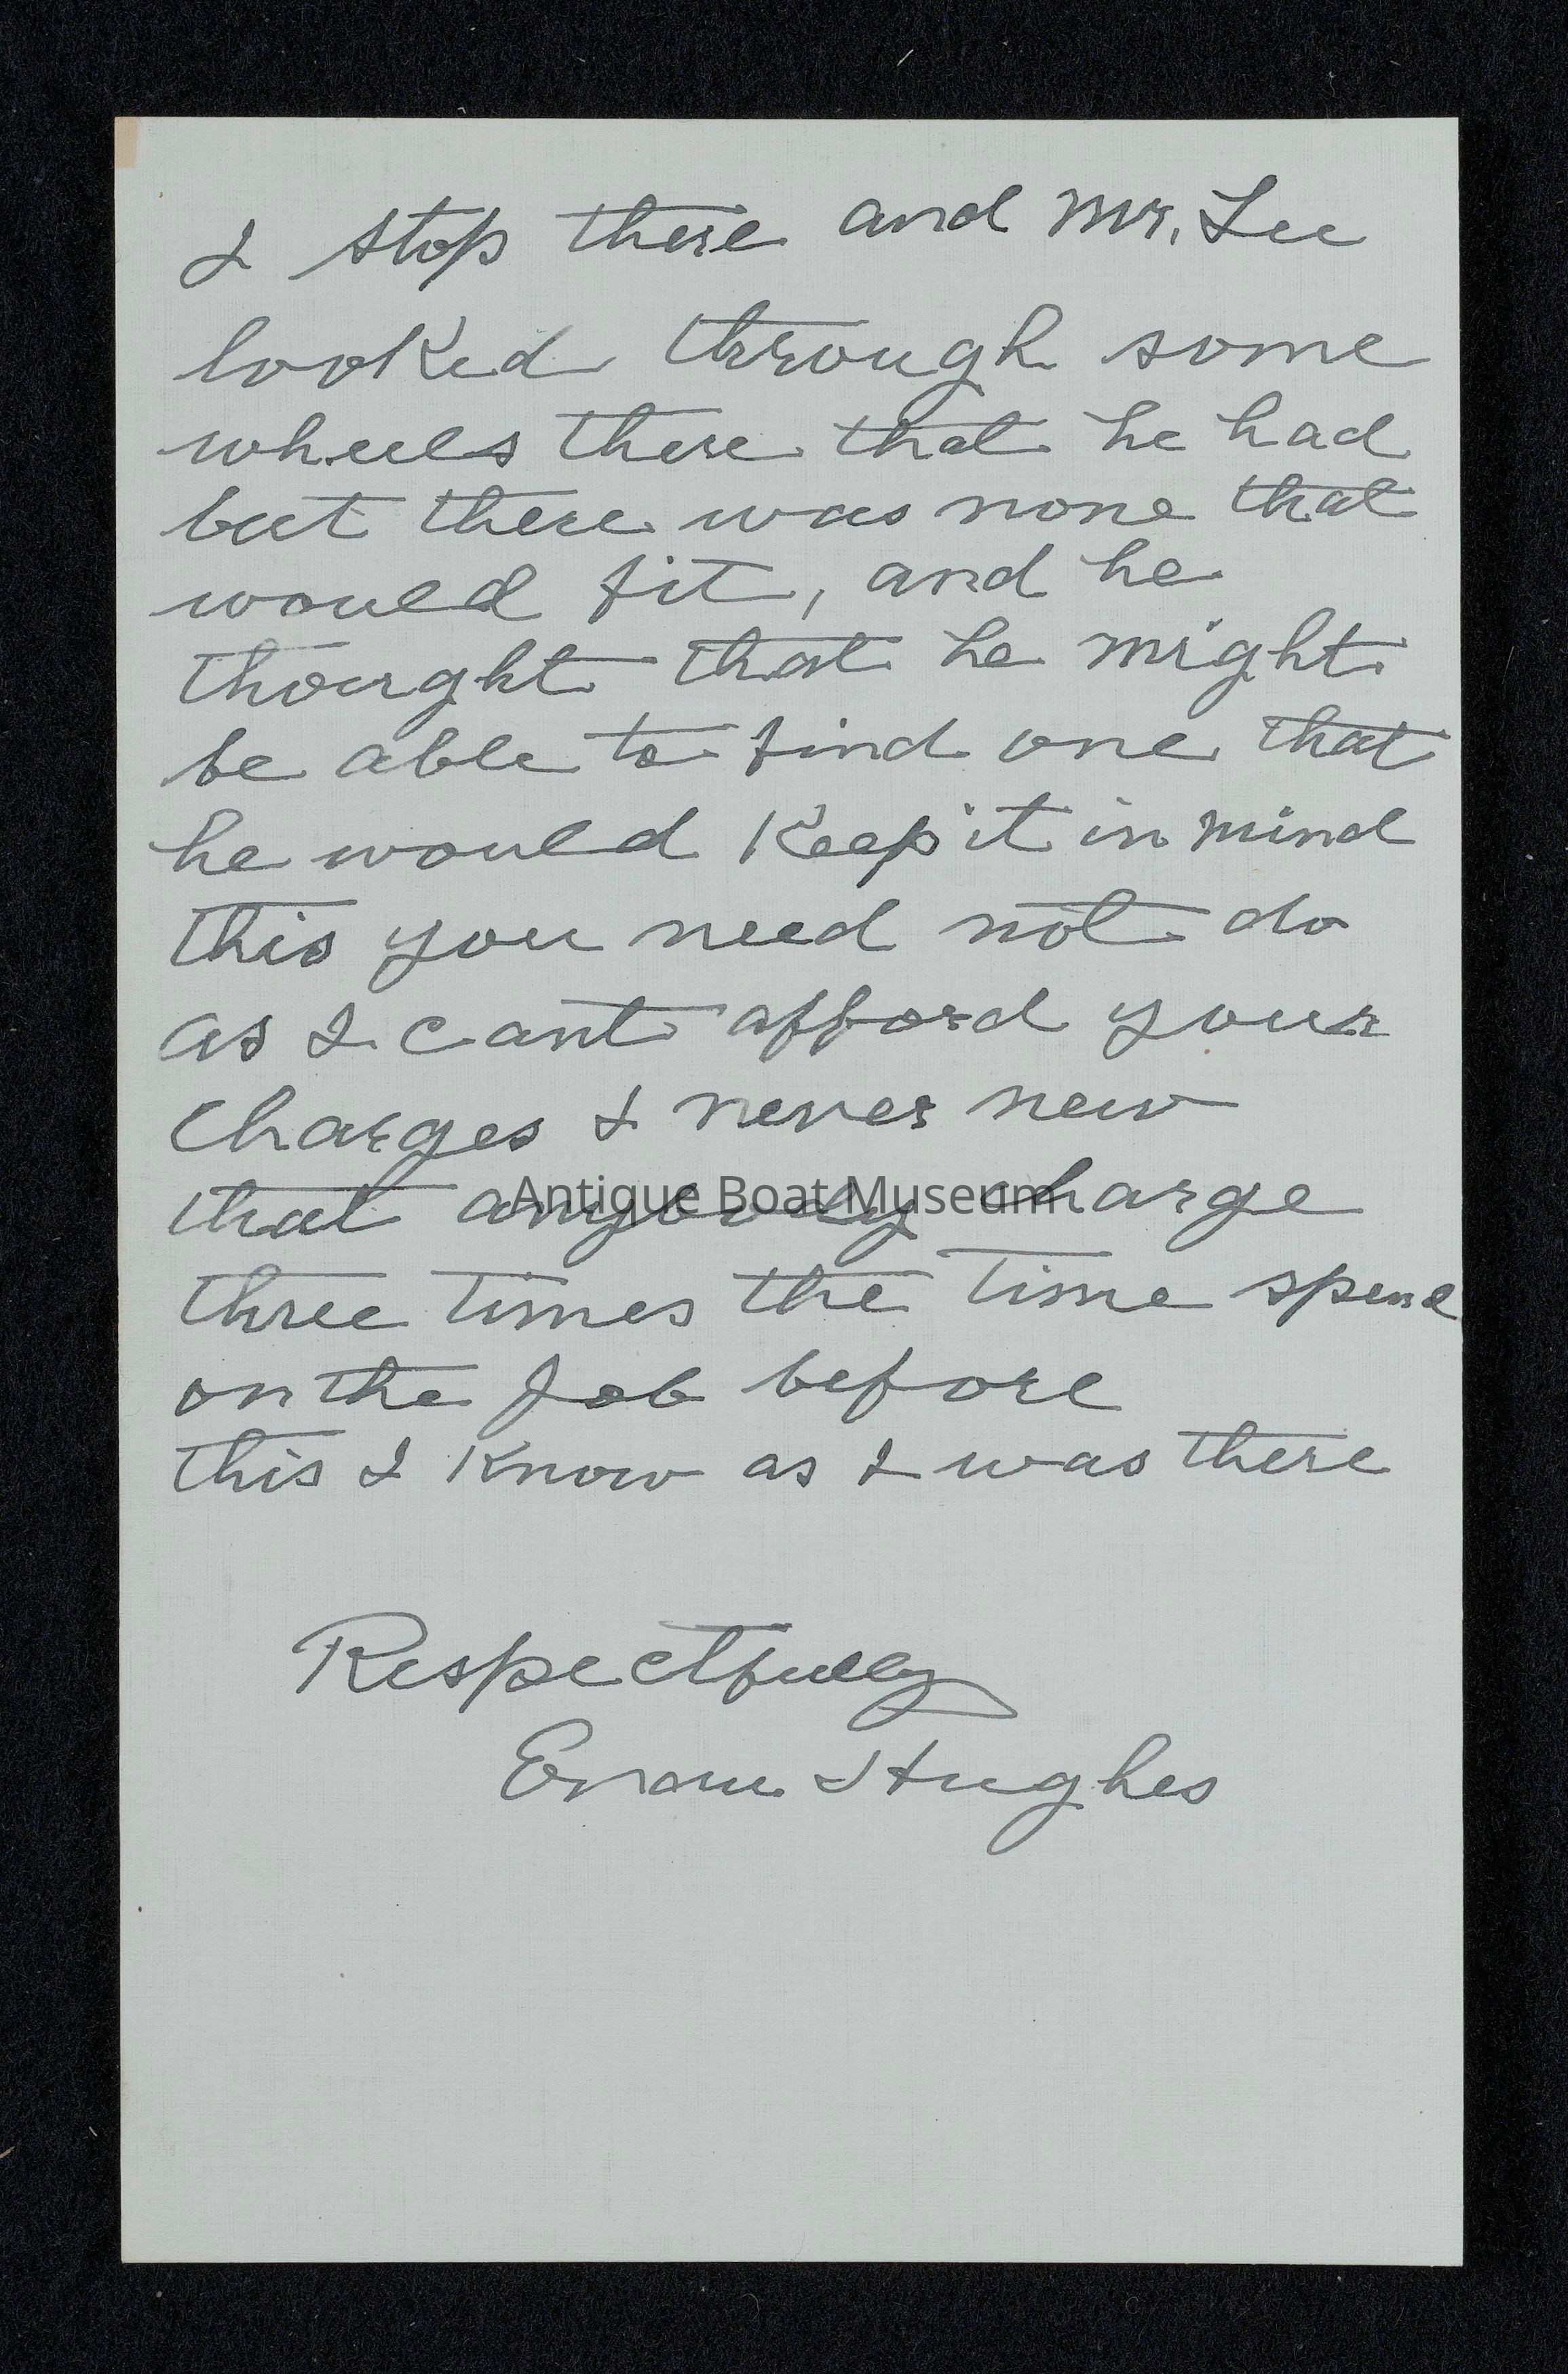 I stop there and Mr. Lee
looked through some
wheels there that he had
but there was none that
would fit, and he
thought that he might
be able to find one that
he would Keep it in mind
this you need not do
as I cant afford your
charges I never new
that anybody charge
Antique Boat Museum
three times the time spend
on the Job before
this I Know as I was there
Respectfully
Hughes